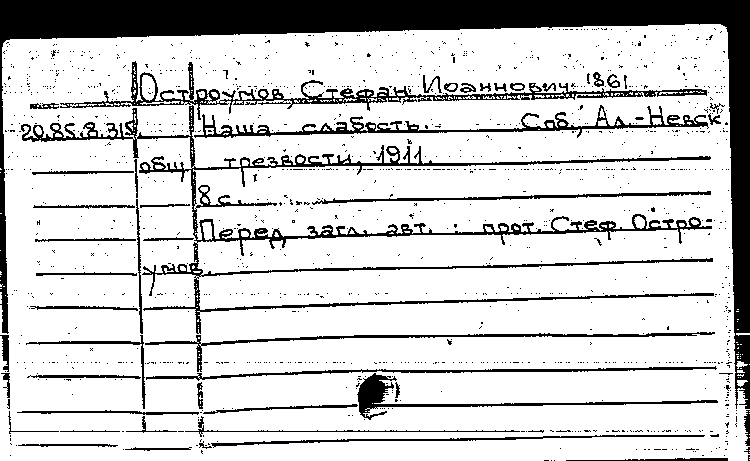 Остроумов, Стефан Иоаннович. 1861
20.85.8.315. Наша слабость. - Спб., Ал.-Невск
общ. трезвости, 1911.
8 с.
Перед загл. авт. : прот. Стеф. Остро-
умов.